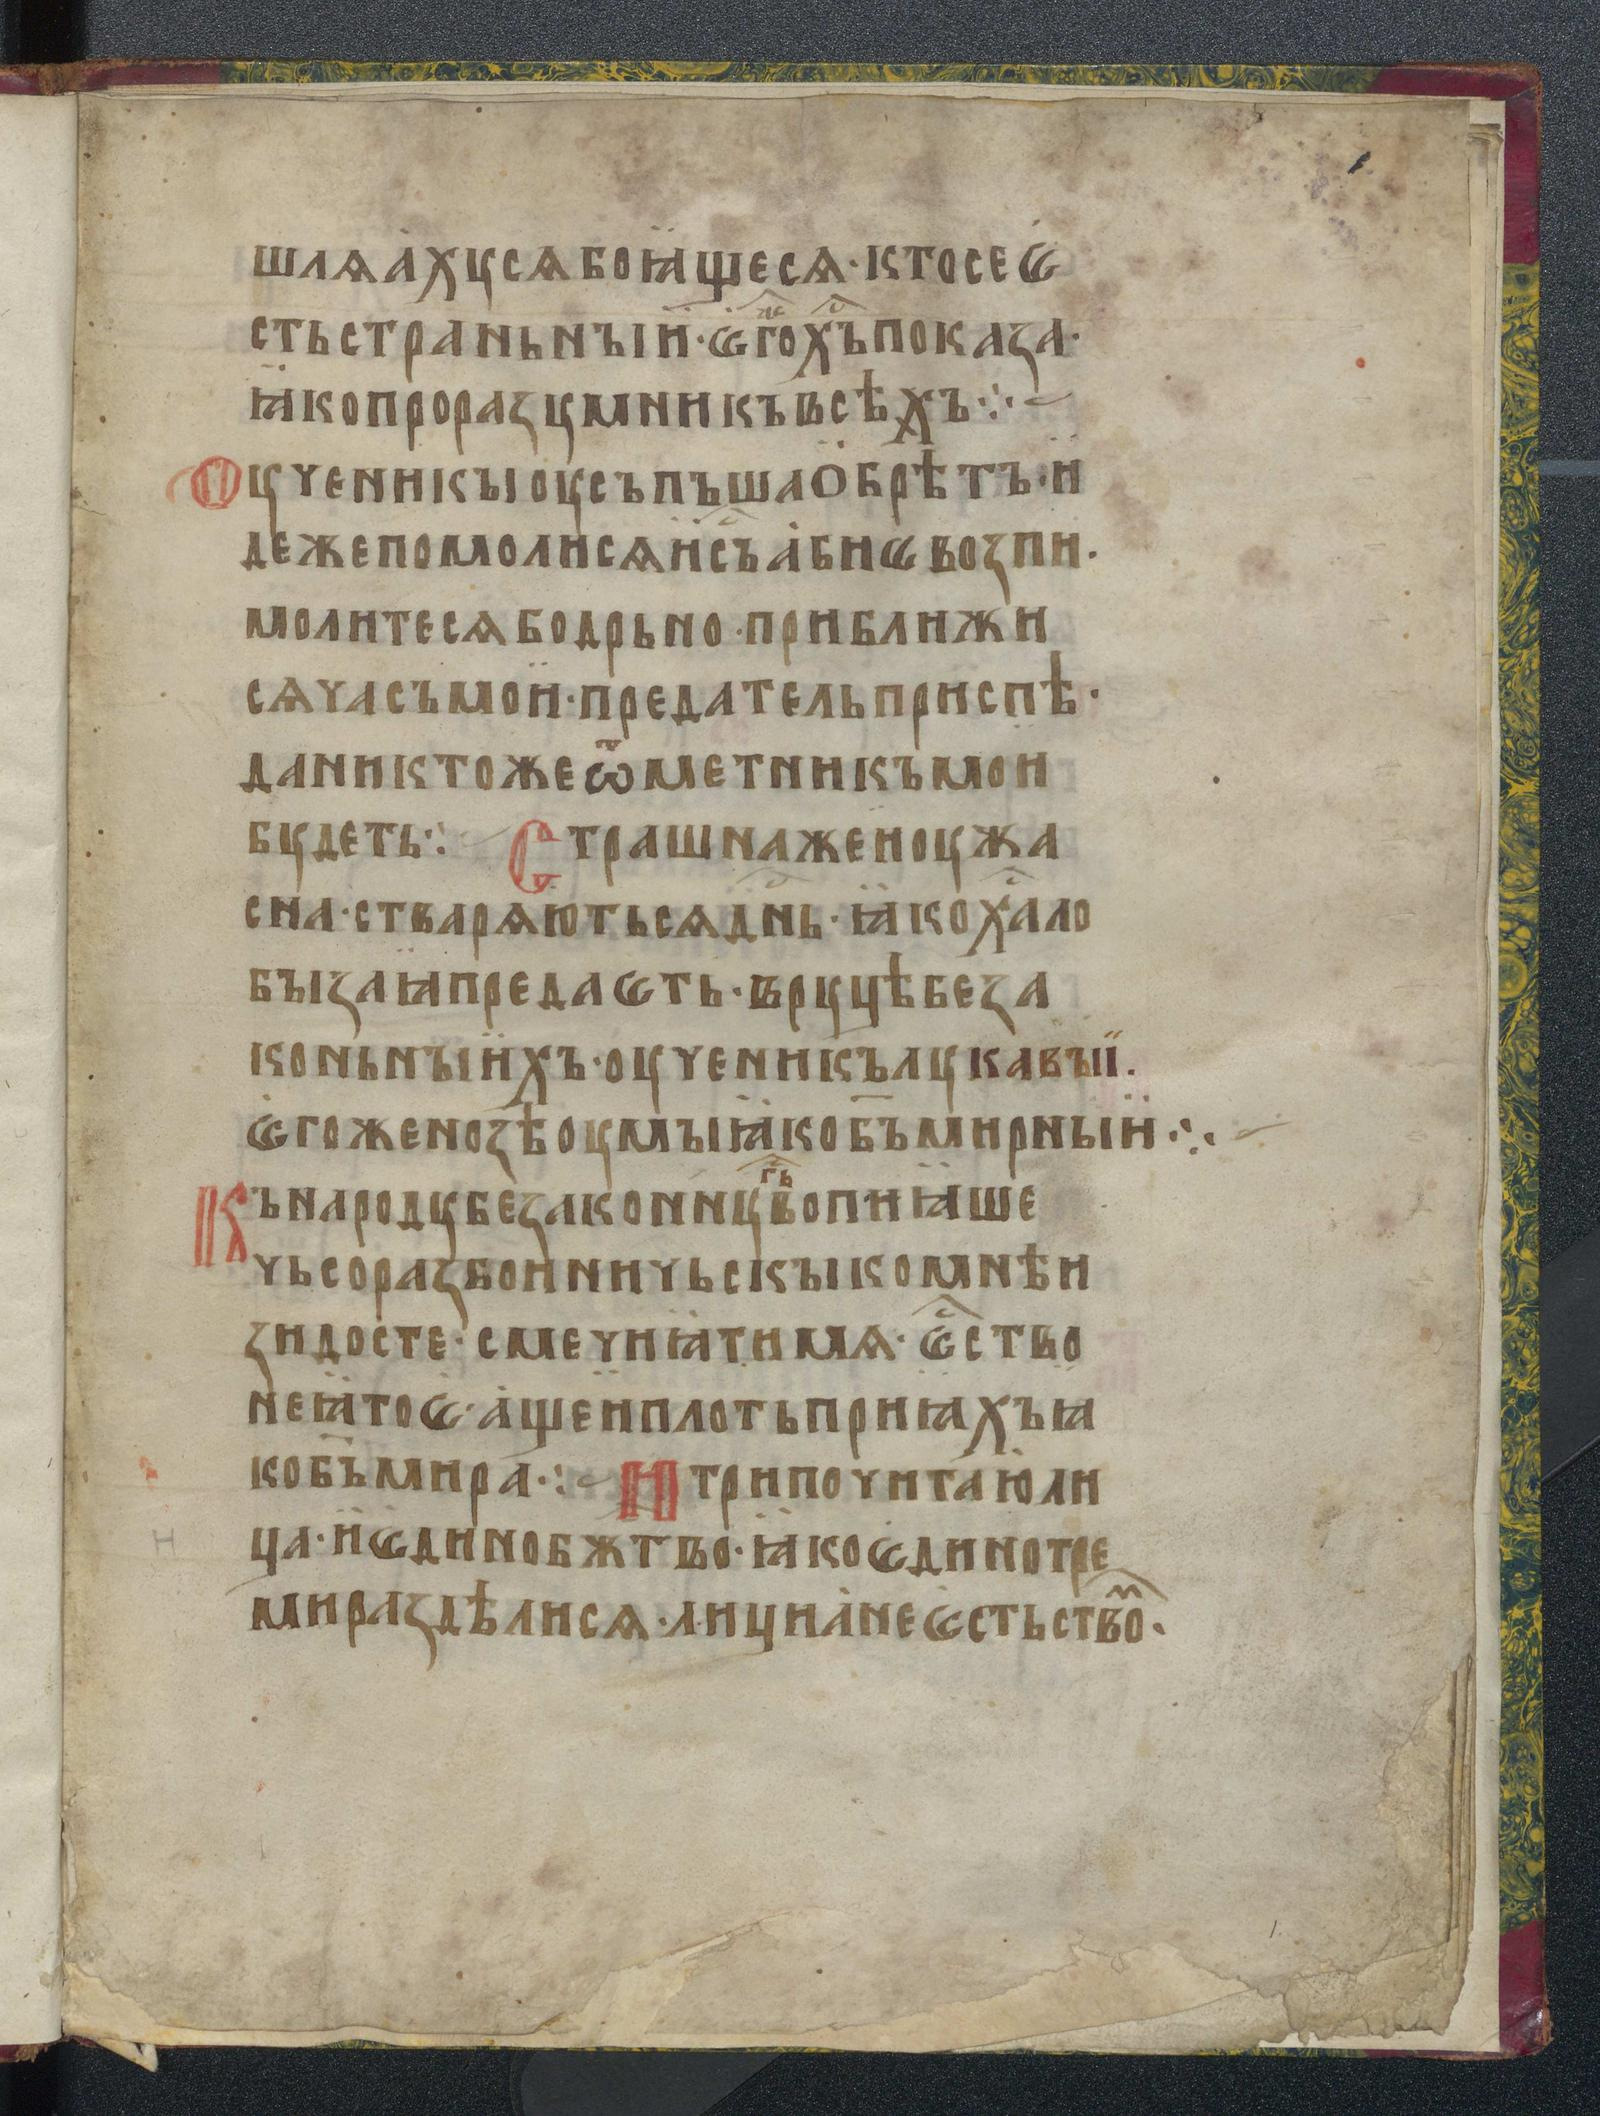 шлѧахꙋсѧбоꙗщесѧ·ктосеѥ
стьстраньнꙑи·ѥгоⷤхⷭ҇ъпоказа·
ꙗкопроразꙋмникъвсѣхъ⁘
Оꙋченикꙑоꙋсъпъшаобрѣтъ·и
дежепомолисѧиⷭ҇съабиѥвозпи·
молитесѧбодрьно·приближи
сѧчасъмои·предательприспѣ·
даниктожеѿметникъмои
бꙋдеть⁘ Страшнажеиоꙋжа
сна·стварѧютьсѧдⷭ҇нь·ꙗкохⷭ҇ало
бꙑзаꙗпредаѥть·врꙋцѣбеза
коньнꙑихъ·оꙋченикълꙋкавꙑї·
ѥгоженозѣоꙋмꙑꙗкобъ҃мирнꙑи⁘
Кънародꙋбезаконнꙋгⷭ҇ьвопиꙗше
чьсоразбоиничьскꙑкомнѣи
зидосте·смечиꙗтимѧ·ѥⷭ҇ство
неꙗтоѥ·ащеиплотьприꙗхъꙗ
кобъ҃мира⁘ Итрипочитаюли
ца·иѥдинобжтво·ꙗкоѥдинотре
мираздѣлисѧ·лицианеѥстьствоⷨ·